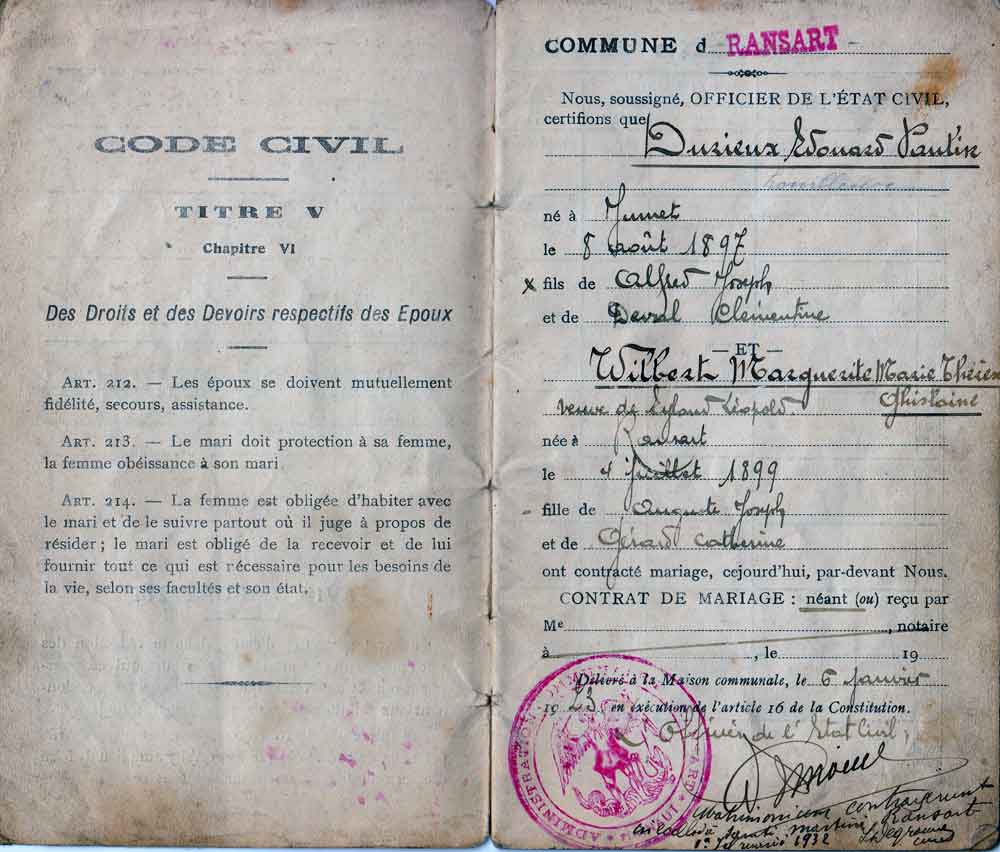 CODE CIVIL
TITRE V
Chapitre VI
Des Droits et des Devoirs respectifs des Epoux
ART. 212. — Les époux se doivent mutuellement
fidélité, secours, assistance.
ART. 213. — Le mari doit protection à sa femme,
la femme obéissance à son mari.
ART. 214. — La femme est obligée d'habiter avec
le mari et de le suivre partout où il juge à propos de
résider ; le mari est obligé de la recevoir et de lui
fournir tout ce qui est nécessaire pour les besoins de
la vie, selon ses facultés et son état.
COMMUNE d RANSART
Nous, soussigné, OFFICIER DE L'ÉTAT CIVIL,
certifions que
Durieux Edouard Paulin
né à Jumet
le 8 août 1897
x fils de Alfred Joseph
et de Devral Clémentine
— ET —
Wilbert Marguerite Marie Thérèse
Ghislaine
veuve de Léopold
née à Ransart
le 4 juillet 1899
fille de Auguste Joseph
et de Gérard Catherine
ont contracté mariage, cejourd'hui, par-devant Nous.
CONTRAT DE MARIAGE : néant (ou) reçu par
Me , notaire
à , le 19
Délivré à la Maison communale, le 6 Janvier
1923 en exécution de l'article 16 de la Constitution.
L'Officier de l'Etat Civil,
matrimonium contraxerunt
in ecclesia Ransart
1932
ADMINISTRATION COMMUNALE RANSART